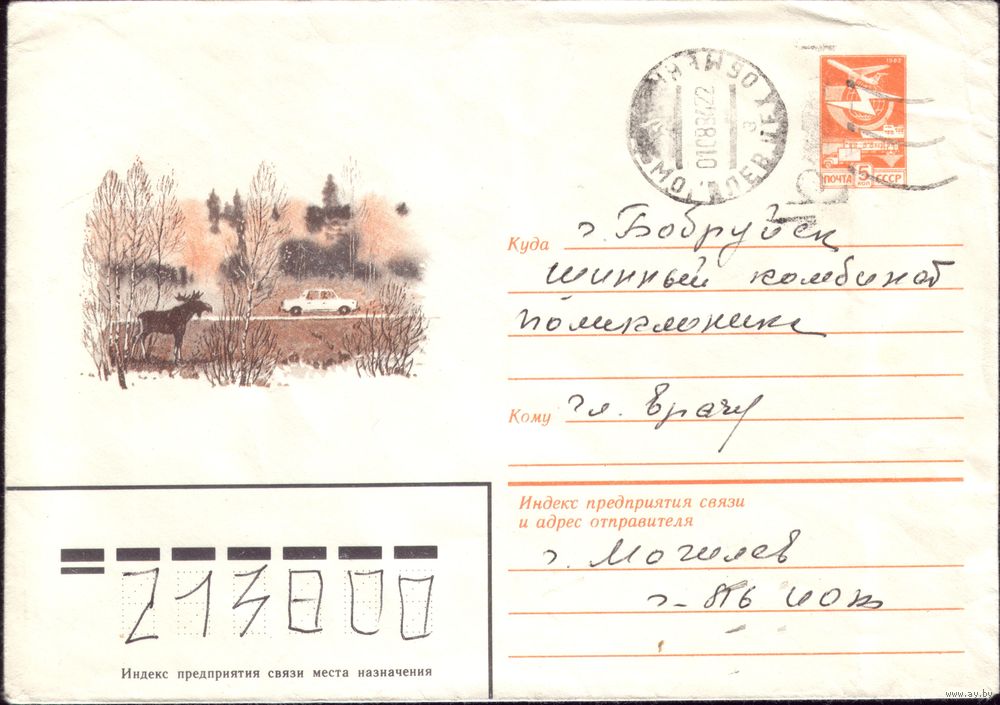 1982
ПОЧТА 5 КОП СССР
010883 22
Куда г. Бобруйск
шинный комбинат
поликлиника
Кому Гл. врачу
Индекс предприятия связи
и адрес отправителя
г. Могилев
213800
Индекс предприятия связи места назначения
www.ay.by